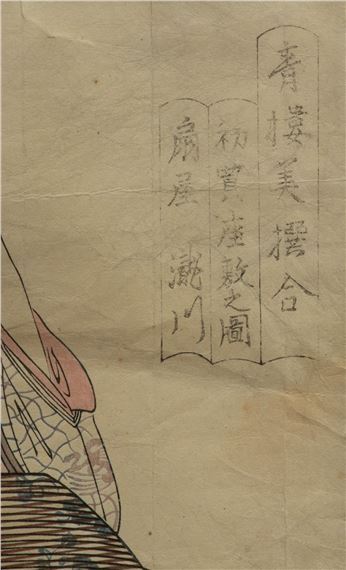 青楼美撰合
初買座敷之圖
扇屋 瀧川